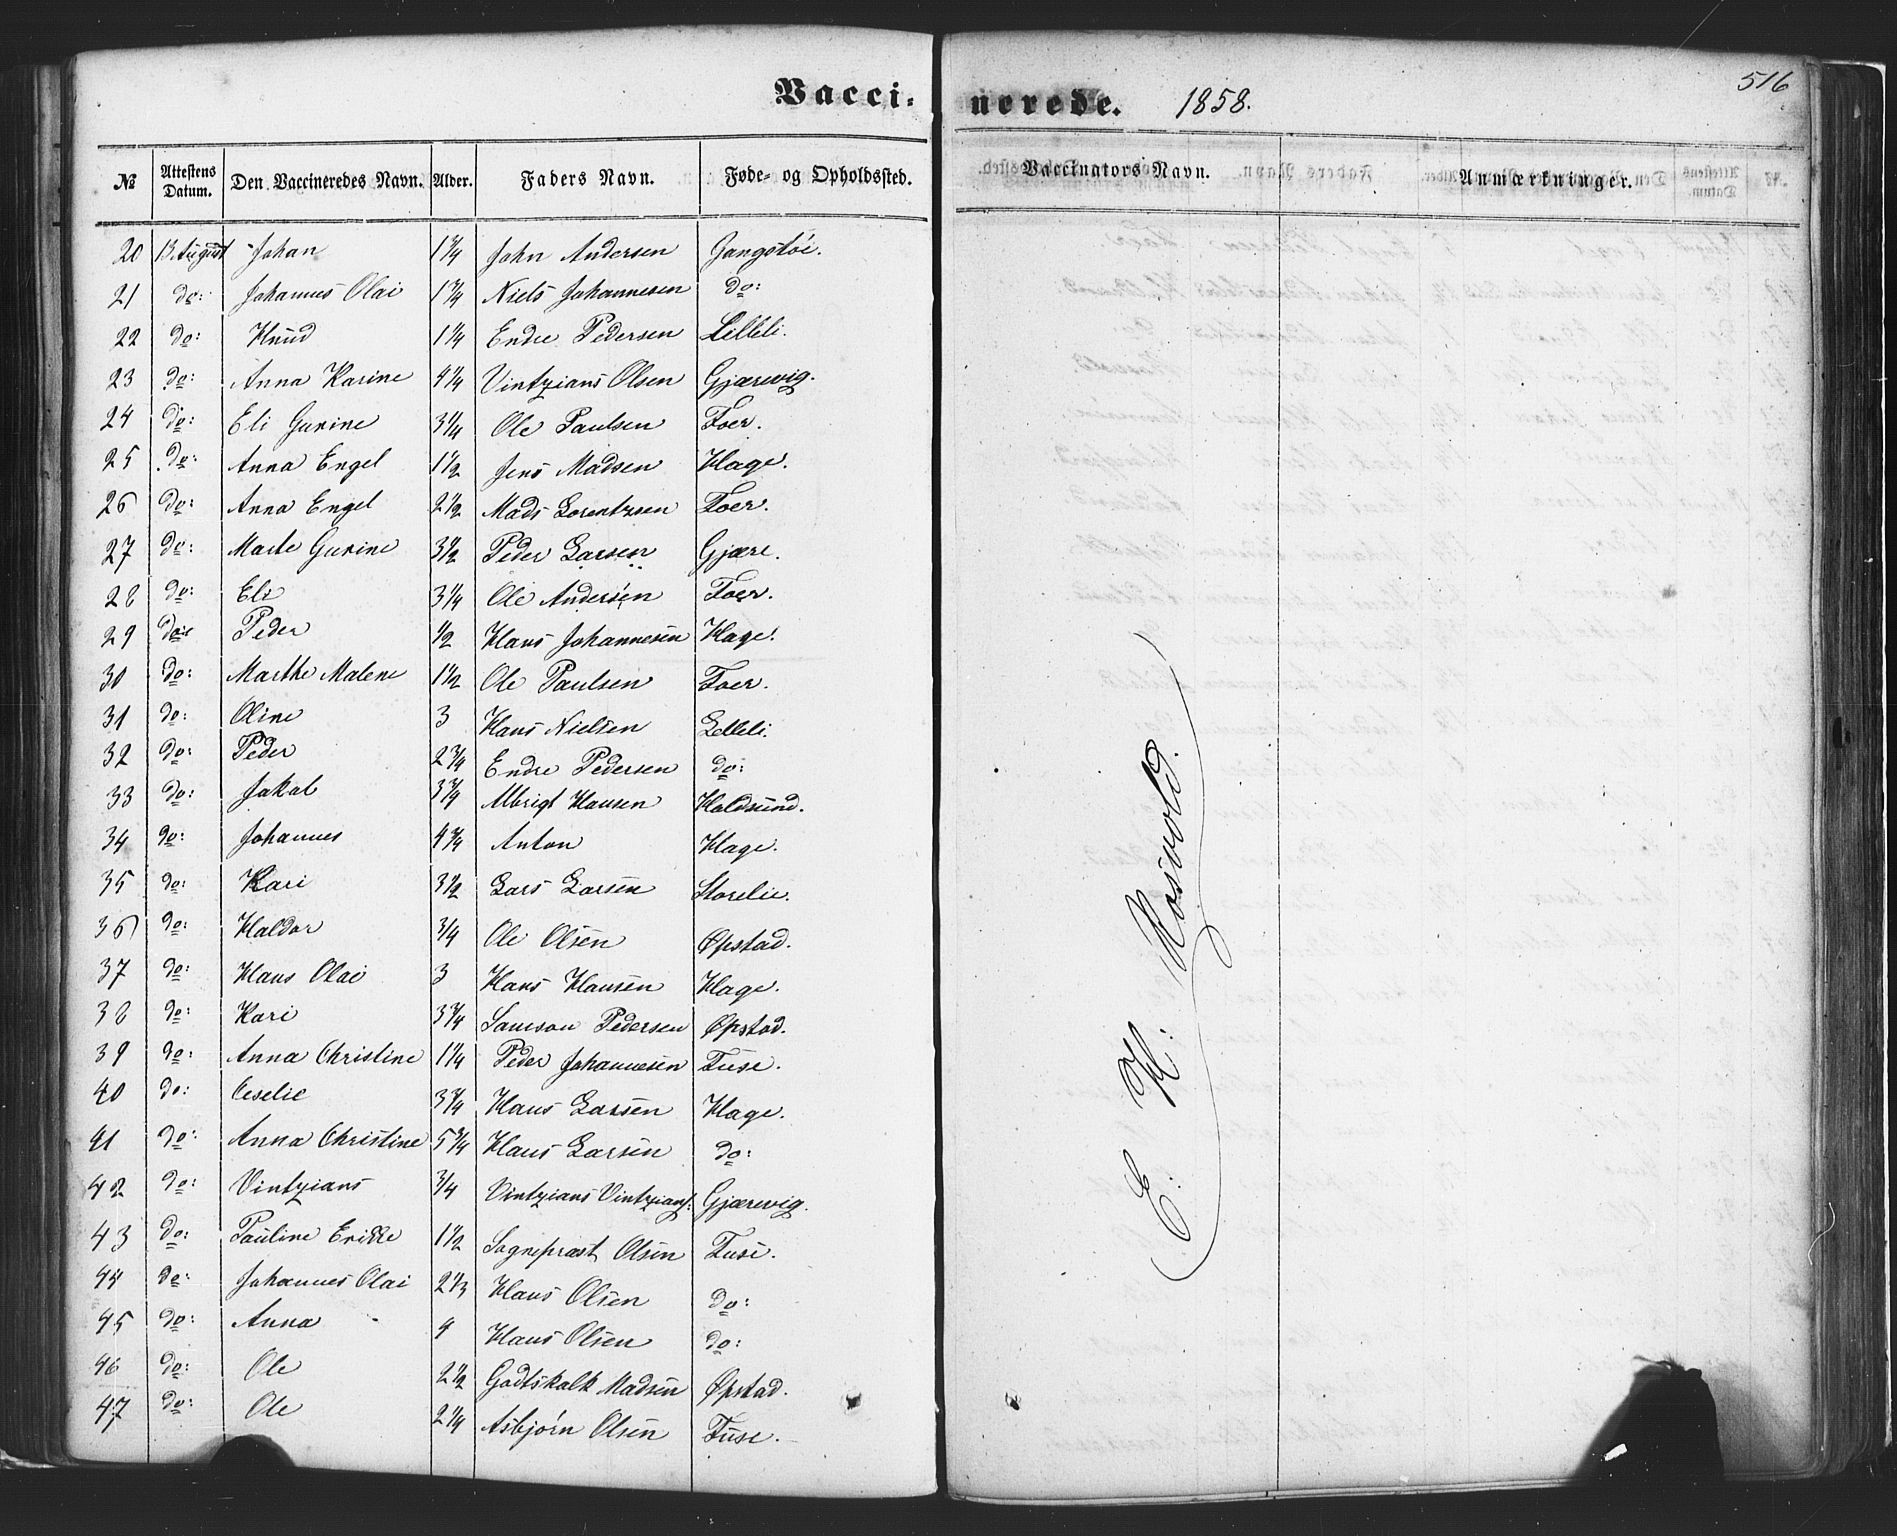 Vaccinerede. 1858. 516
№ Attestens Datum. Den Vaccineredes Navn. Alder. Faders Navn. Føde- og Opholdssted. Vaccinators Navn. Anmærkninger.
20 13 August Johan 1 3/4 John Andersen Gangstøe.
21 do: Johannes Olai 1 3/4 Niels Johannesen do:
22 do: Knud 1 1/4 Endre Pedersen Lilleli.
23 do: Anna Karine 4 1/4 Vintzians Olsen Gjærevig.
24 do: Eli Gurine 3 1/4 Ole Paulsen Foer.
25 do: Anna Engel 1 1/2 Jens Madsen Hage.
26 do: Anna Engel 2 1/2 Mads Lorentzsen Foer.
27 do: Marte Gurine 3 1/2 Peder Larsen Gjære.
28 do: Eli 3 1/4 Ole Andersen Foer.
29 do: Peder 1/2 Hans Johannesen Hage.
30 do: Marthe Malene 1 1/2 Ole Paulsen Foer.
31 do: Oline 3 Hans Nielsen Lilleli.
32 do: Peder 2 3/4 Endre Pedersen do:
33 do: Jakob 3 3/4 Albrigt Hansen Holdsund.
34 do: Johannes 4 3/4 Anton Hage.
35 do: Kari 3 1/2 Lars Larsen Storelie.
36 do: Haldor 3/4 Ole Olsen Øpstad.
37 do: Hans Olai 3 Hans Hansen Hage.
38 do: Kari 3 3/4 Samson Pedersen Øpstad.
39 do: Anna Christine 1 1/4 Peder Johannesen Fuse.
40 do: Ceselie 3 3/4 Hans Larsen Hage.
41 do: Anna Christine 5 3/4 Hans Larsen do:
42 do: Vintzians 3/4 Vintzians Vintzians: Gjærevig.
43 do: Pauline Erikke 1 1/2 Sognepræst Olsen Fuse.
44 do: Johannes Olai 2 1/3 Hans Olsen do:
45 do: Anna 4 Hans Olsen do:
46 do: Ole 2 1/2 Godtskalk Madsen Øpstad.
47 do: Ole 2 1/4 Asbjørn Olsen Fuse.
E. H. Hosvold.